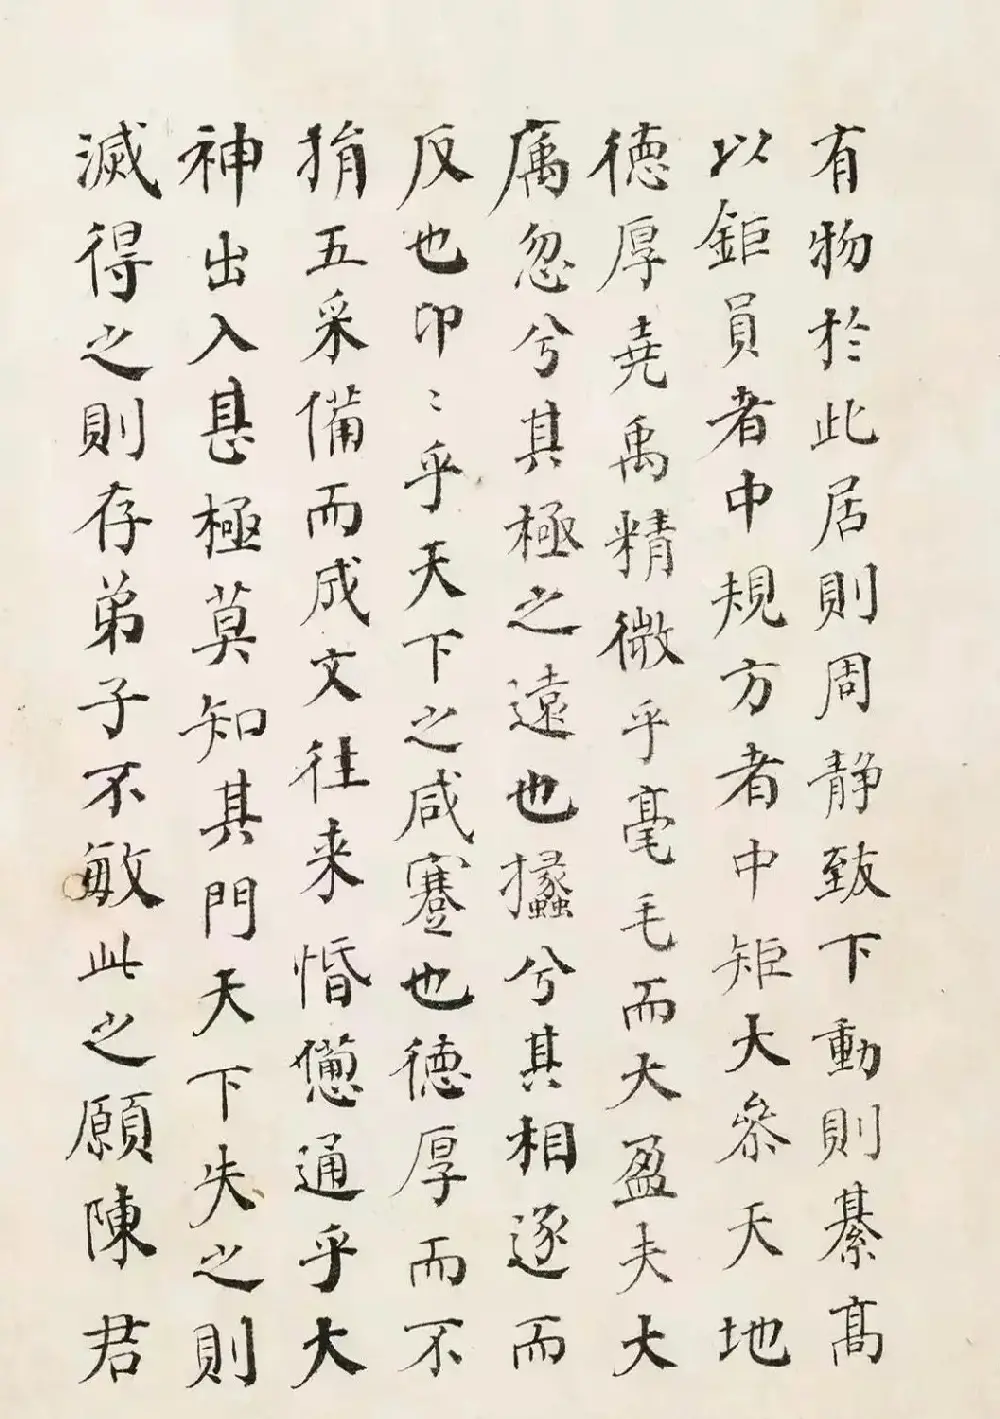 有物於此居則周静致下動則綦髙
以鉅員者中規方者中矩大叅天地
徳厚堯禹精微乎毫毛而大盈夫大
庽忽兮其極之遠也攭兮其相逐而
反也卬〻乎天下之咸蹇也徳厚而不
捐五采備而成文徃来惛憊通乎大
神出入甚極莫知其門天下失之則
滅得之則存弟子不敏此之願陳君